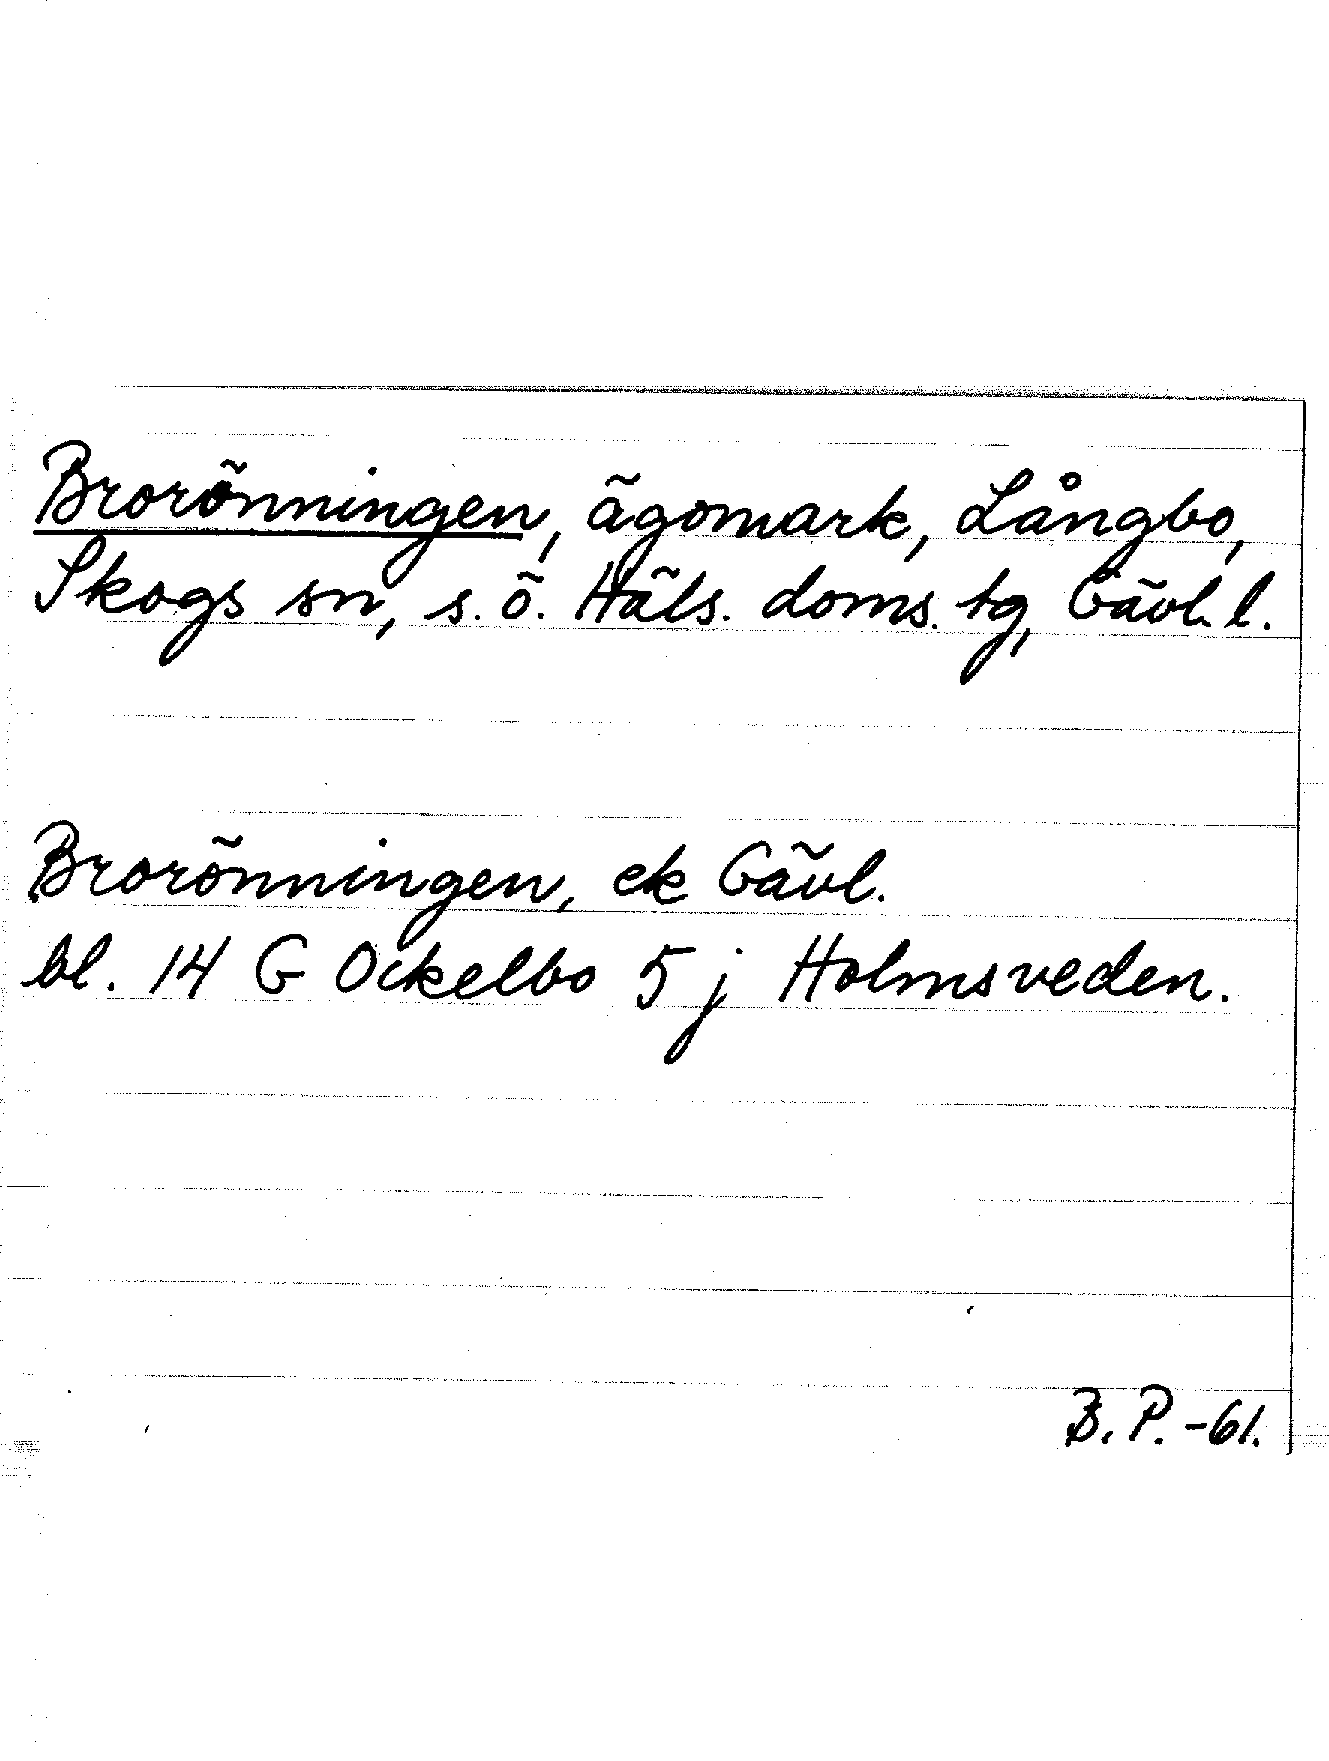 Brorönningen, ägomark, Långbo,
Skogs sn, s. ö. Häls. doms. tg, Gävl. l.
Brorönningen, ek Gävl.
bl. 14 G Ockelbo 5 j Holmsveden.
B. P. -61.